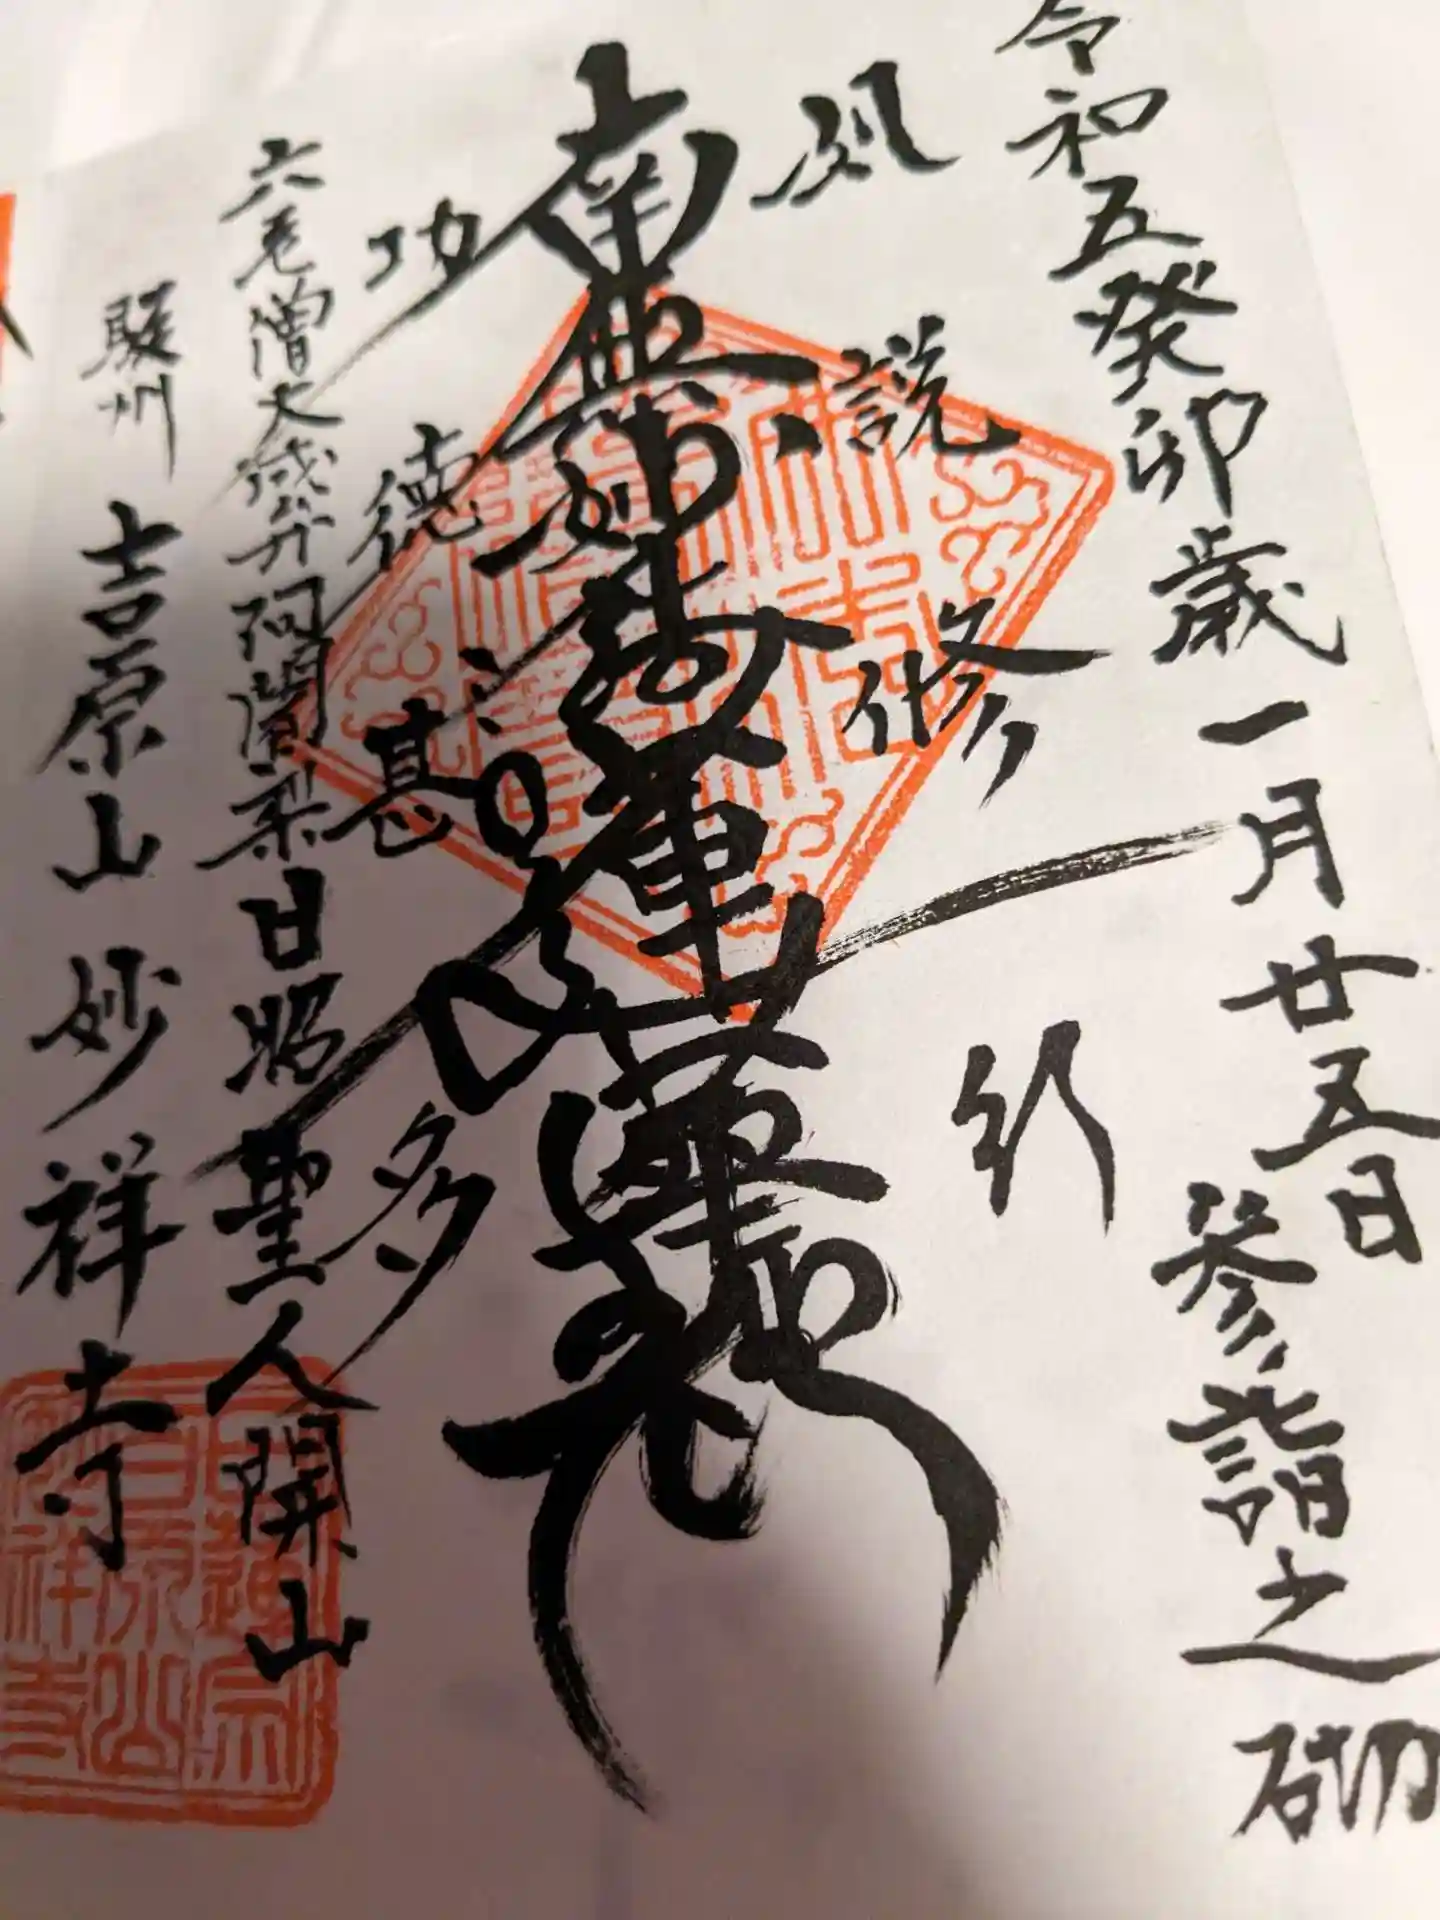 令和五癸卯歳一月廿五日参詣之砌
如説修行
南無妙法蓮華経
功徳甚多
六老僧大成弁阿闍梨日昭聖人開山
駿州 吉原山 妙祥寺